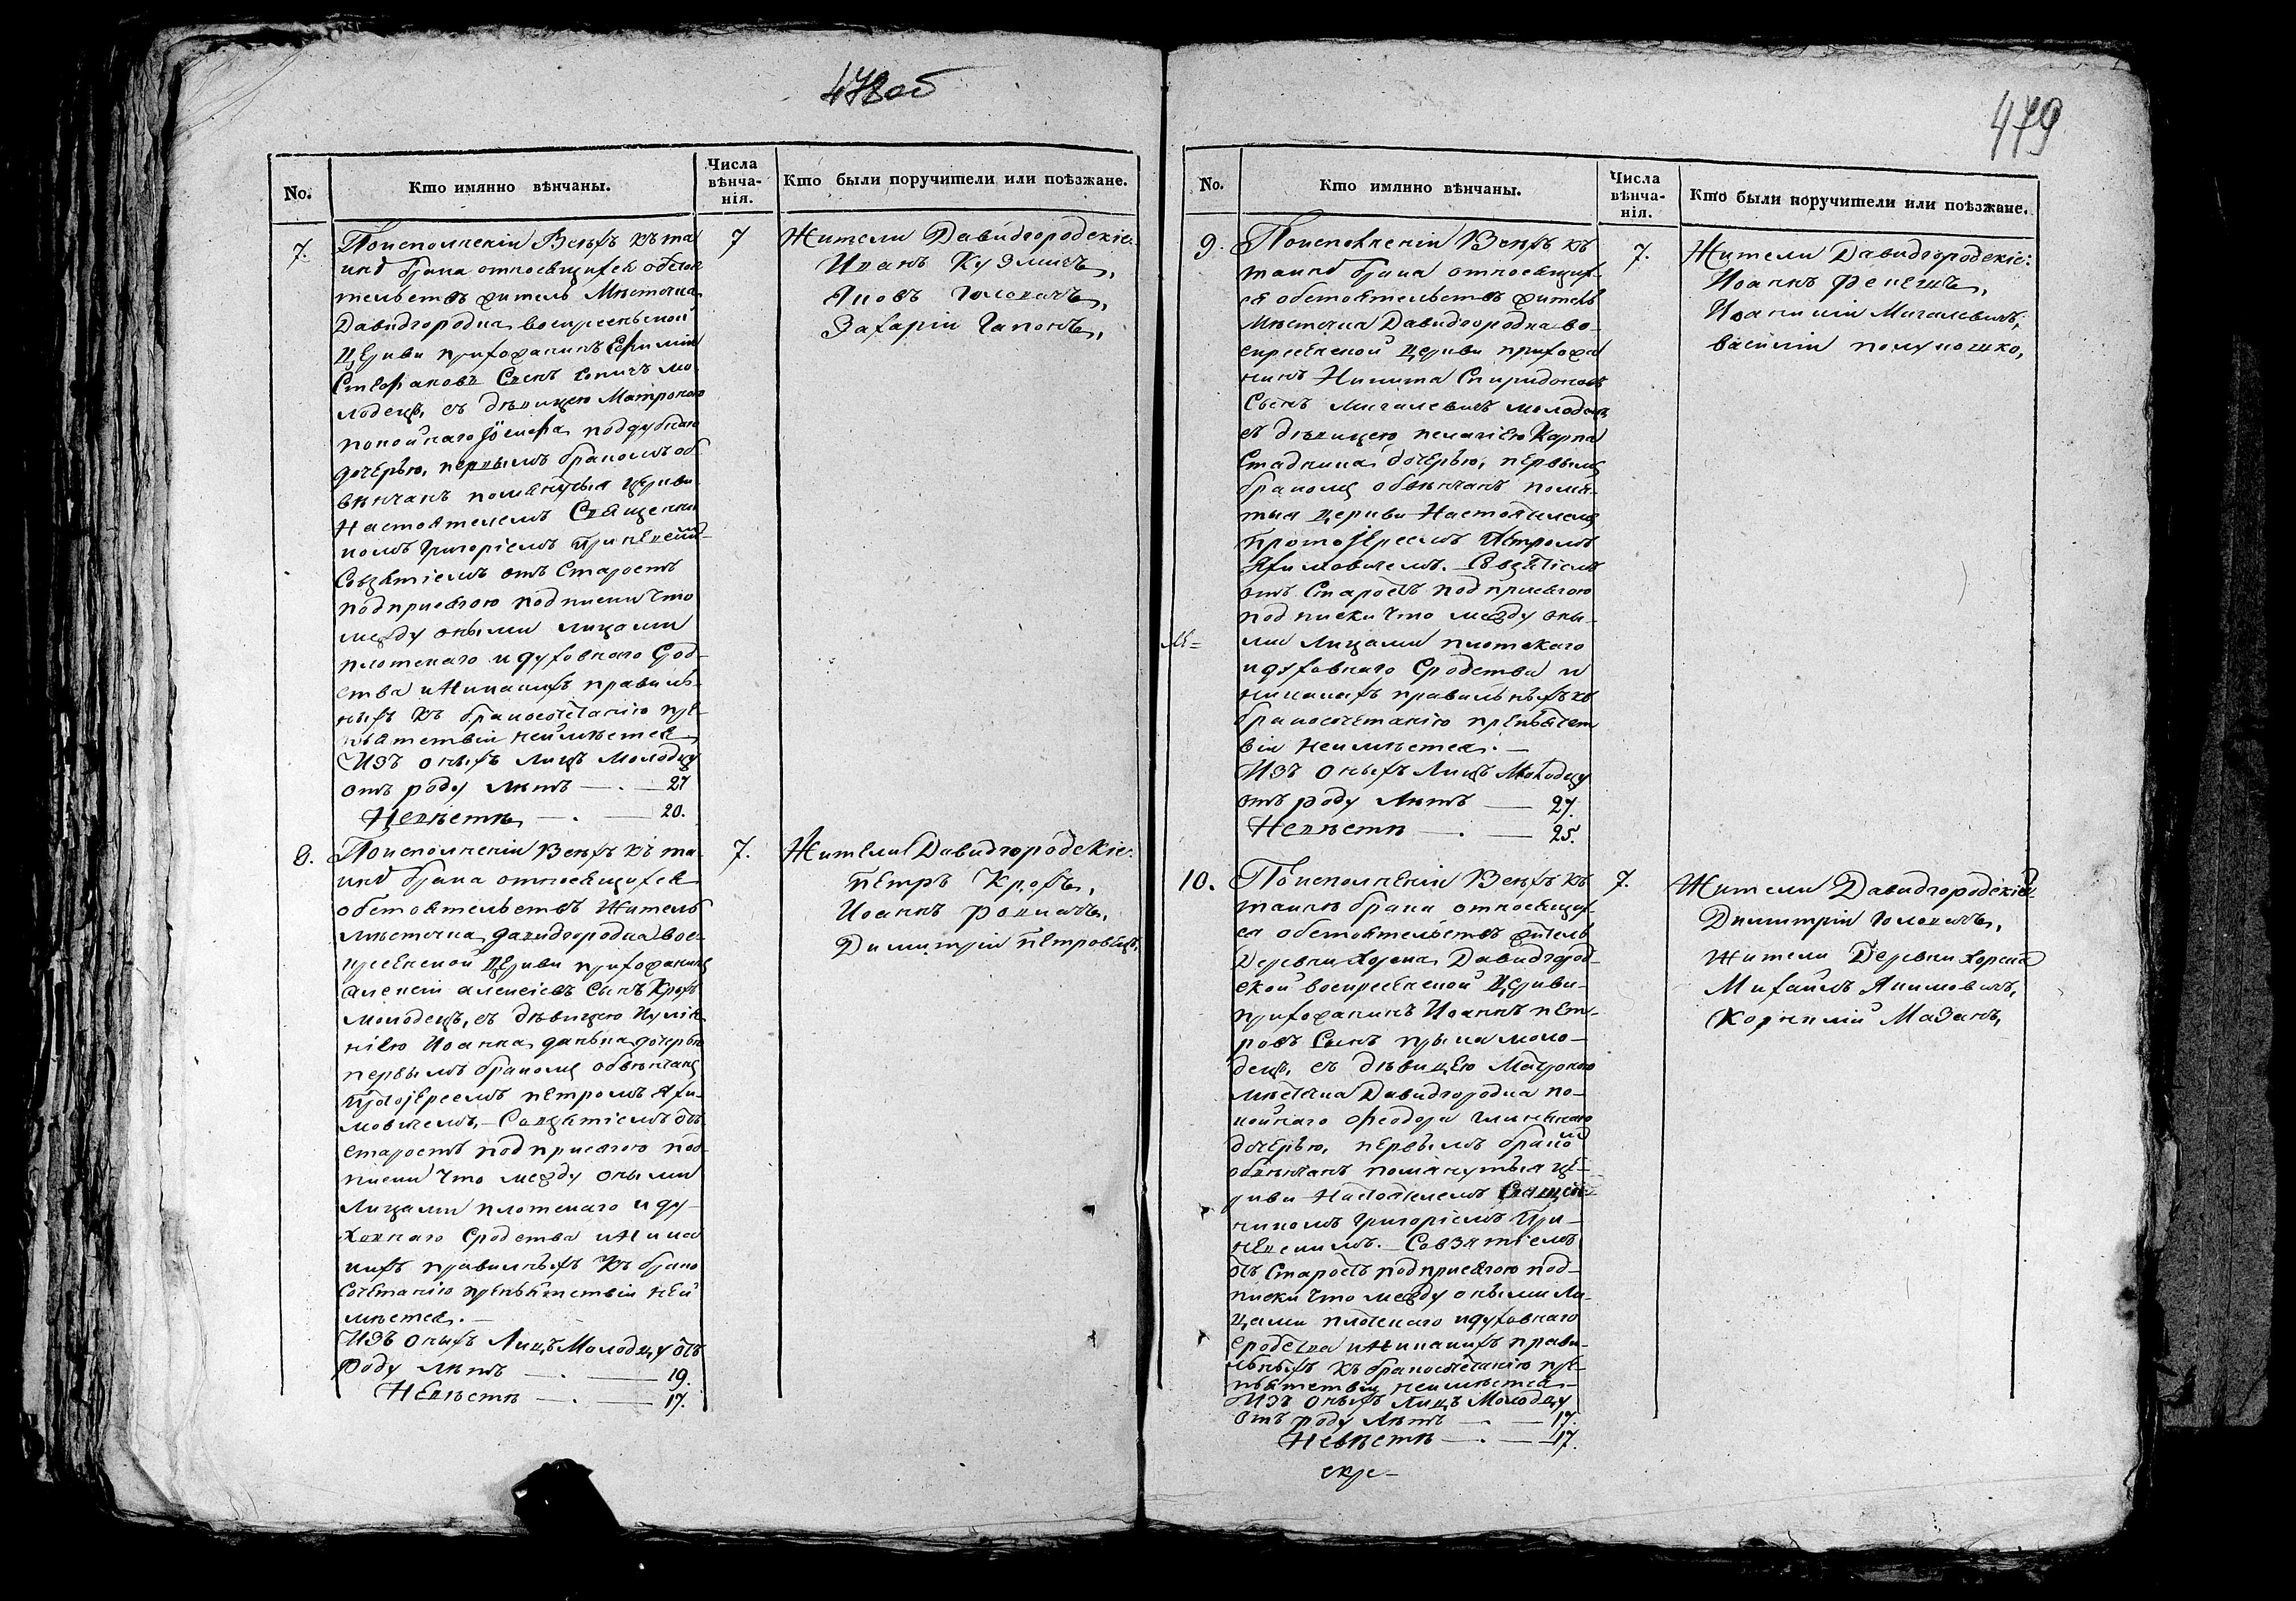 478 об
No.
Кто имянно вѣнчаны.
Числа
вѣнча-
нія.
Кто были поручители или поѣзжане.
7.
По исполненіи всѣхъ къ та
инѣ брака относящихся обстоя
тельствъ житель мѣстечка
Давидгородка воскресенской
Церкви прихожанинъ Ефимій
Стефановъ Сынъ мо
лодецъ, съ дѣвицею Матроною
покойнаго Іосифа
дочерью, первымъ бракомъ об
вѣнчанъ помянутыя церкви
Настоятелемъ Священни
комъ Григоріемъ
Совзятіемъ отъ Старостъ
подприсягою подписки что
между оными лицами
плотскаго и духовнаго Срод-
ства и Никакихъ правиль-
ныхъ къ бракосочетанію пре-
пятствій неимѣется
Изъ оныхъ лицъ молодцу
отъ роду лѣтъ — . — 27
Невѣстѣ — . — 20.
7
Жители Давидгородскіе:
Иванъ Кузмичъ,
Яковъ Головачъ,
Захарій Гапонъ,
8.
По исполненіи всѣхъ къ та-
инѣ брака относящихся
обстоятельствъ Житель
мѣстечка давидгородка вос-
кресенской Церкви прихожанинъ
Алексій алексіевъ Сынъ Крохъ
молодецъ, съ дѣвицею Иулія-
ніею Иоанна дочерью
первымъ бракомъ обвѣнчанъ
Протоіереемъ петромъ Яхи-
мовичемъ, — Совзятіемъ отъ
старостъ подприсягою под-
писки что между оными
лицами плотскаго и ду-
ховнаго Сродства и Ника
кихъ правилныхъ къ брако
сочетанію препятствій неи
мѣется. —
Изъ оныхъ Лицъ Молодцу отъ
роду лѣтъ — . — 19.
Невѣстѣ — . — 17.
7.
Жители Давидгородскіе:
петръ Крохъ,
Иоаннъ
Димитрій петровецъ,
479
No.
Кто имянно вѣнчаны.
Числа
вѣнча-
нія.
Кто были поручители или поѣзжане.
9.
По исполненіи всѣхъ къ
таинѣ брака относящих-
ся обстоятельствъ житель
мѣстечка Давидгородка во-
скресенской церкви прихожа
нинъ Никита Спиридоновъ
Сынъ Мигалевичъ молодецъ
съ дѣвицею пелагіею Карпа
Стадника дочерью, первымъ
бракомъ обвѣнчанъ помя-
тыя церкви Настоятелемъ
протоіереемъ Петромъ
Яхимовичемъ. — Совзятіемъ
отъ Старостъ подприсягою
подписки что между оны-
ми лицами плотскаго
и духовнаго Сродства и
никакихъ правильныхъ къ
бракосочетанію препятст
вій неимѣется. —
Изъ оныхъ Лицъ Молодцу
отъ роду лѣтъ — 27.
Невѣстѣ — . — 25.
7.
Жители Давидгородскіе:
Иоаннъ
Мигалевичъ,
василій полуношко,
10.
По исполненіи всѣхъ къ
таинѣ брака относящих-
ся обстоятельствъ житель
Деревни Хорска Давидгород-
ской воскресенской Церкви
прихожанинъ Иоаннъ пет-
ровъ Сынъ моло-
децъ, съ дѣвицею Матроною
мѣстечка Давидгородка по-
койнаго Феодора
дочерью, первымъ бракомъ
обвѣнчанъ помянутыя це-
ркви Настоятелемъ Священ-
никомъ Григоріемъ
Совзятіемъ
отъ Старостъ подприсягою под-
писки что между оными ли-
цами плотскаго и духовнаго
сродства и Никакихъ прави-
льныхъ къ бракосочетанію пре-
пятствій неимѣется —
Изъ оныхъ Лицъ Молодцу
отъ роду лѣтъ — . — 17.
Невѣстѣ — . — 17.
7.
Жители Давидгородскіе:
Димитрій Головачъ,
жители Деревни Хорска
Михаилъ Якимовичъ,
Корнилій Мазанъ,